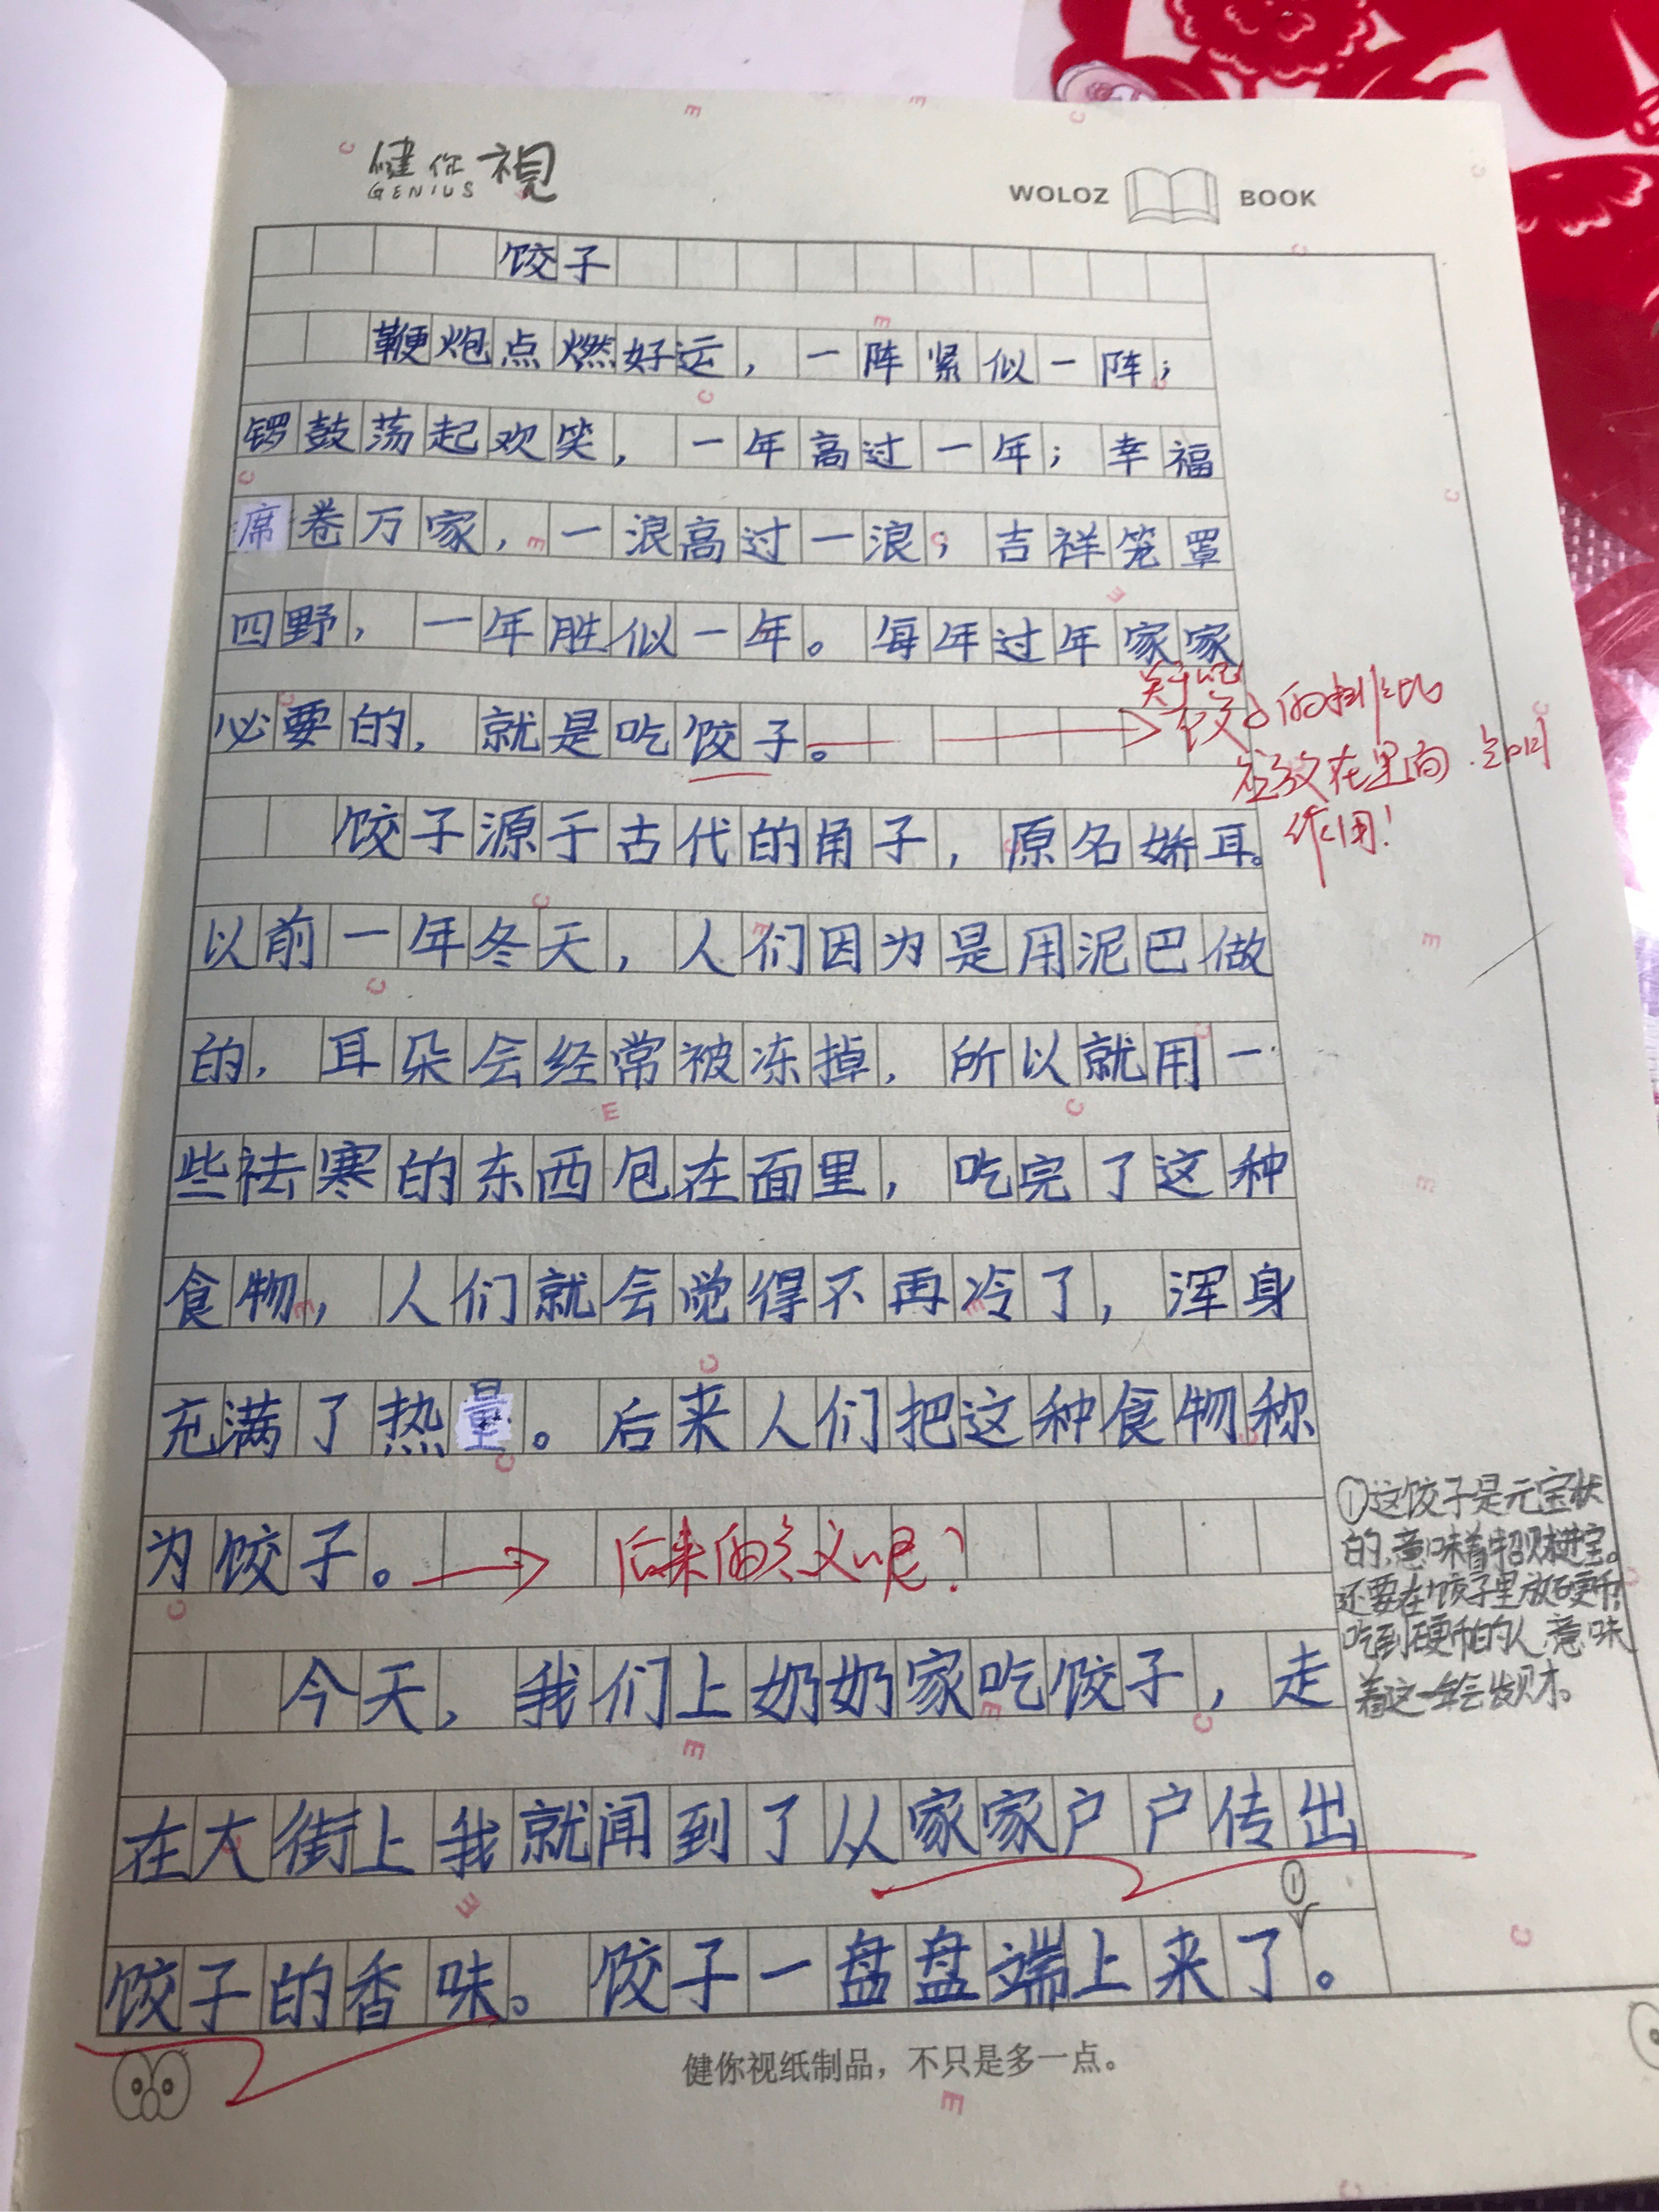 健你視
GENIUS
WOLOZ BOOK
饺子
鞭炮点燃好运，一阵紧似一阵；
锣鼓荡起欢笑，一年高过一年；幸福
席卷万家，一浪高过一浪；吉祥笼罩
四野，一年胜似一年。每年过年家家
必要的，就是吃饺子。
的排比
在里面
作用！
饺子源于古代的角子，原名娇耳。
以前一年冬天，人们因为是用泥巴做
的，耳朵会经常被冻掉，所以就用一
些祛寒的东西包在面里，吃完了这种
食物，人们就会觉得不再冷了，浑身
充满了热量。后来人们把这种食物称
为饺子。
后来的含义呢？
①这饺子是元宝状
的，意味着招财进宝。
还要在饺子里放硬币，
吃到硬币的人，意味
着这一年会发财。
今天，我们上奶奶家吃饺子，走
在大街上我就闻到了从家家户户传出
①
饺子的香味。饺子一盘盘端上来了。
健你视纸制品，不只是多一点。